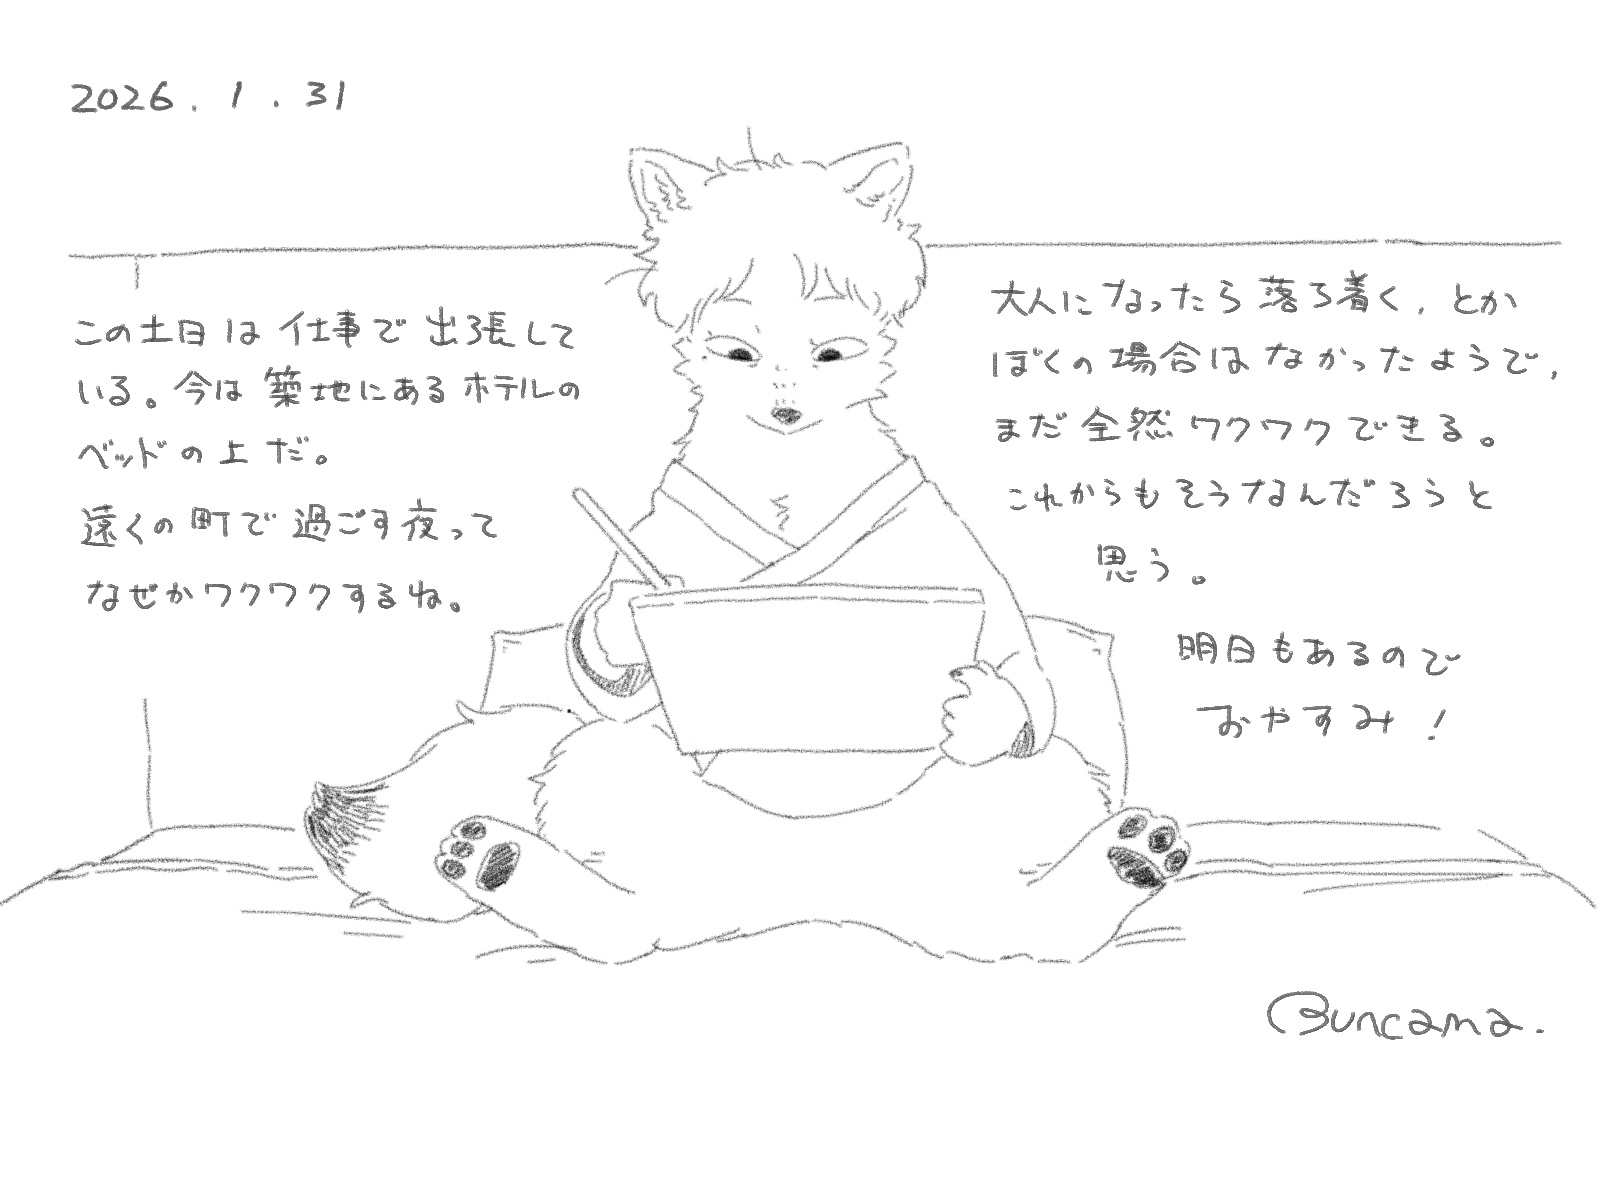 2026.1.31
この土日は仕事で出張して
いる。今は築地にあるホテルの
ベッドの上だ。
遠くの町で過ごす夜って
なぜかワクワクするね。
大人になったら落ち着く、とか
ぼくの場合はなかったようで、
まだ全然ワクワクできる。
これからもそうなんだろうと
思う。
明日もあるので
おやすみ！
Buncama.